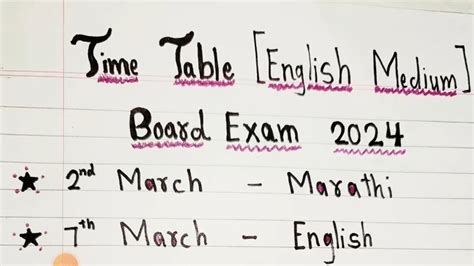 Time Table [English Medium]
Board Exam 2024
★ 2nd March - Marathi
★ 7th March - English